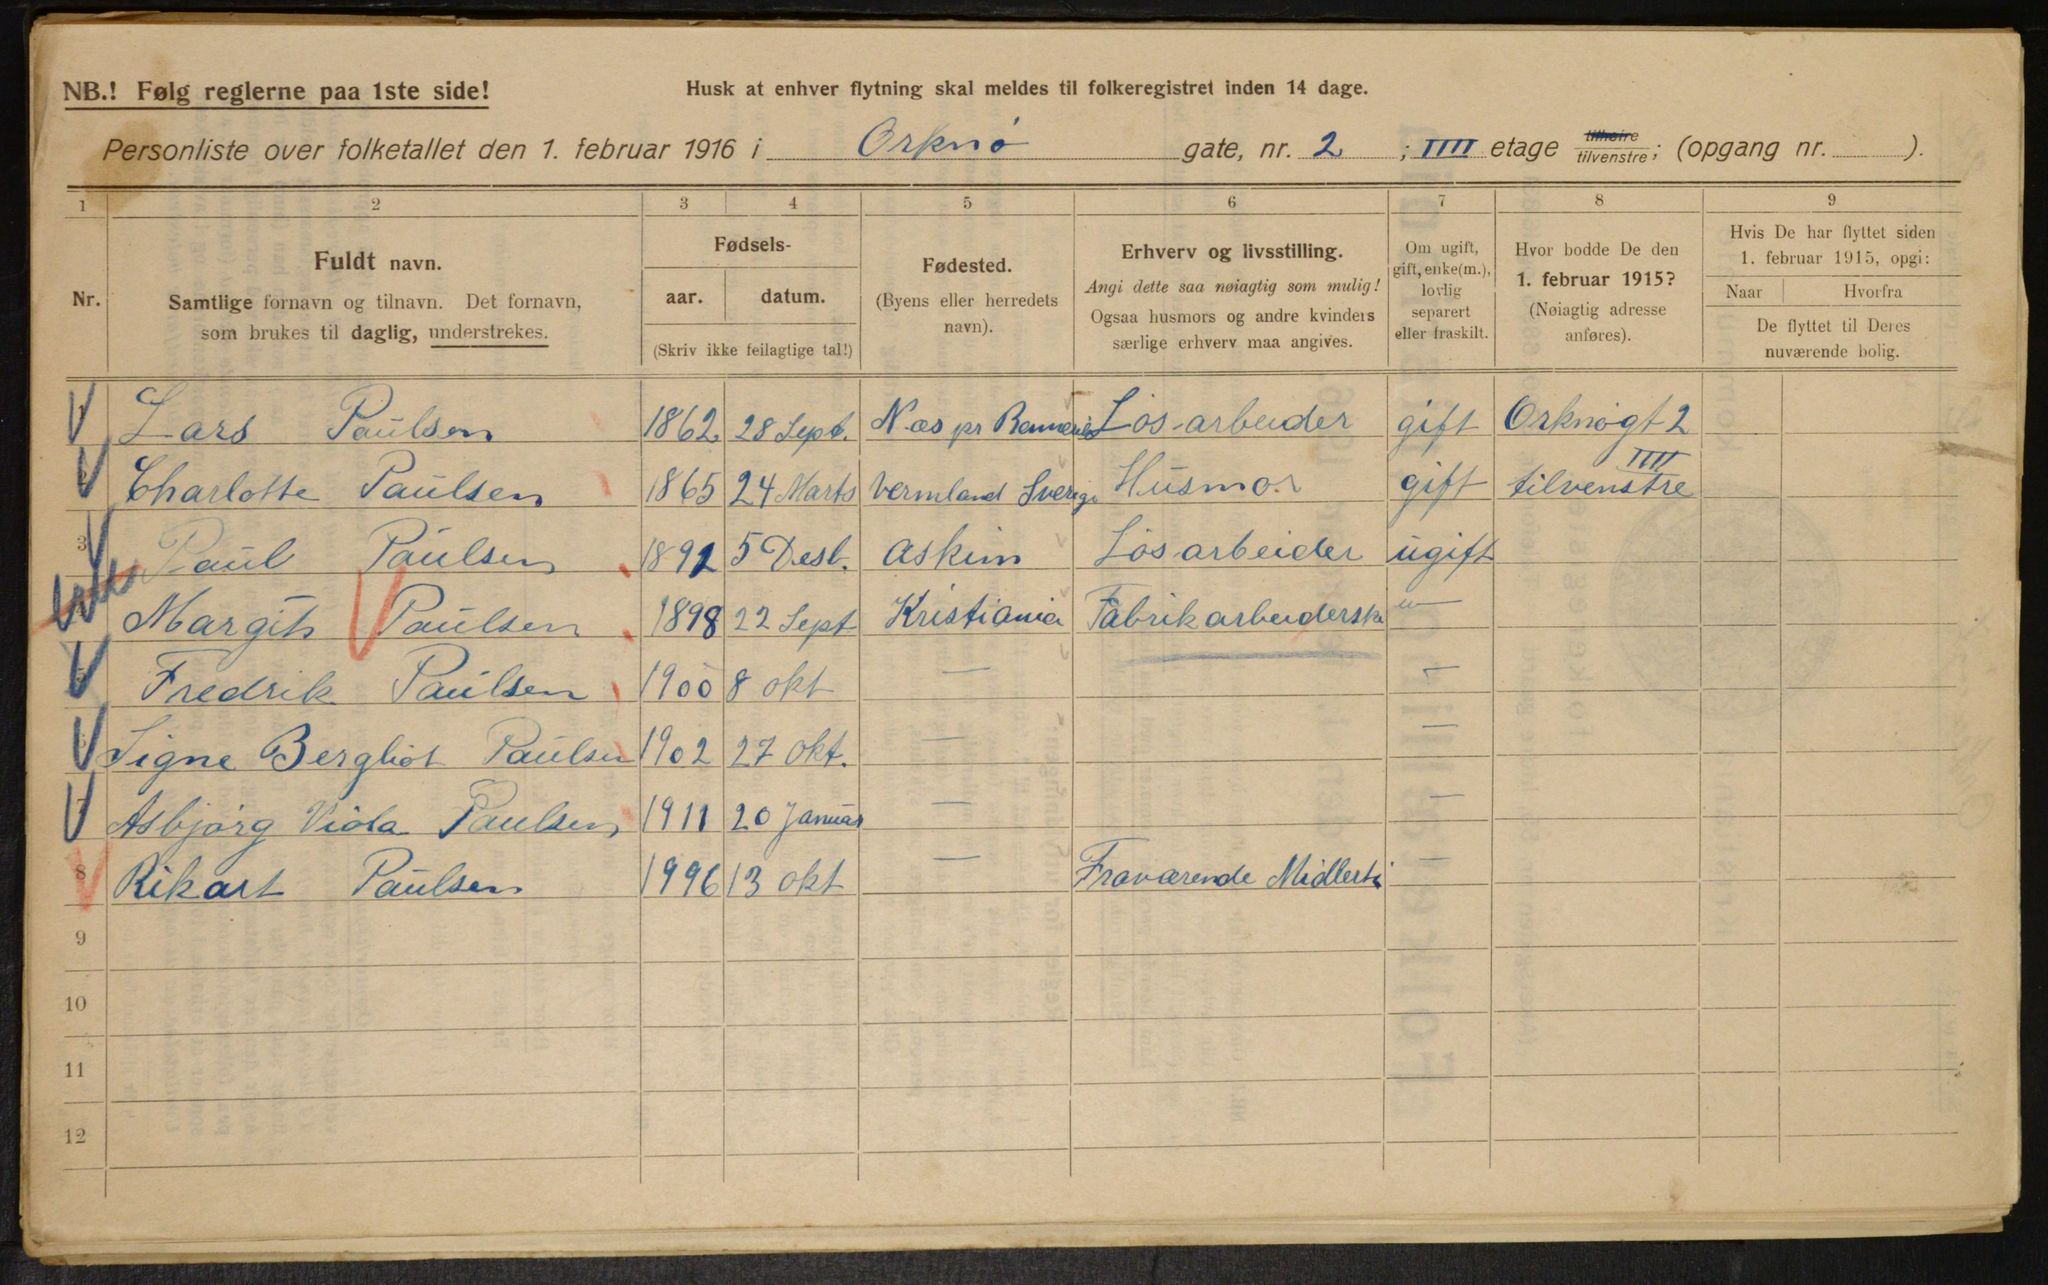 NB.! Følg reglerne paa 1ste side!
Husk at enhver flytning skal meldes til folkeregistret inden 14 dage.
Personliste over folketallet den 1. februar 1916 i Orknø gate, nr. 2 ; IIII etage tilhøire tilvenstre; (opgang nr. ).
1 2 3 4 5 6 7 8 9
Nr.
Fuldt navn.
Samtlige fornavn og tilnavn. Det fornavn,
som brukes til daglig, understrekes.
Fødsels-
aar. datum.
(Skriv ikke feilagtige tal!)
Fødested.
(Byens eller herredets
navn).
Erhverv og livsstilling.
Angi dette saa nøiagtig som mulig!
Ogsaa husmors og andre kvinders
særlige erhverv maa angives.
Om ugift,
gift, enke(m.),
lovlig
separert
eller fraskilt.
Hvor bodde De den
1. februar 1915?
(Nøiagtig adresse
anføres).
Hvis De har flyttet siden
1. februar 1915, opgi:
Naar Hvorfra
De flyttet til Deres
nuværende bolig.
Lars Paulsen 1862 28 Sept. Næs pr Løsarbeider gift Orknøgt 2
Charlotte Paulsen 1865 24 Marts Vermland Sverige Husmor gift tilvenstre IIII
3 Paul Paulsen 1891 5 Desb. Askim Løsarbeider ugift
Margith Paulsen 1898 22 Sept Kristiania Fabrikarbeiderske —"—
5 Fredrik Paulsen 1900 8 okt — —
6 Signe Bergliot Paulsen 1902 27 okt. — —
7 Asbjørg Viola Paulsen 1911 20 Januar — —
8 Rikart Paulsen 1996 13 okt — Fraværende Midlerti —
9
10
11
12